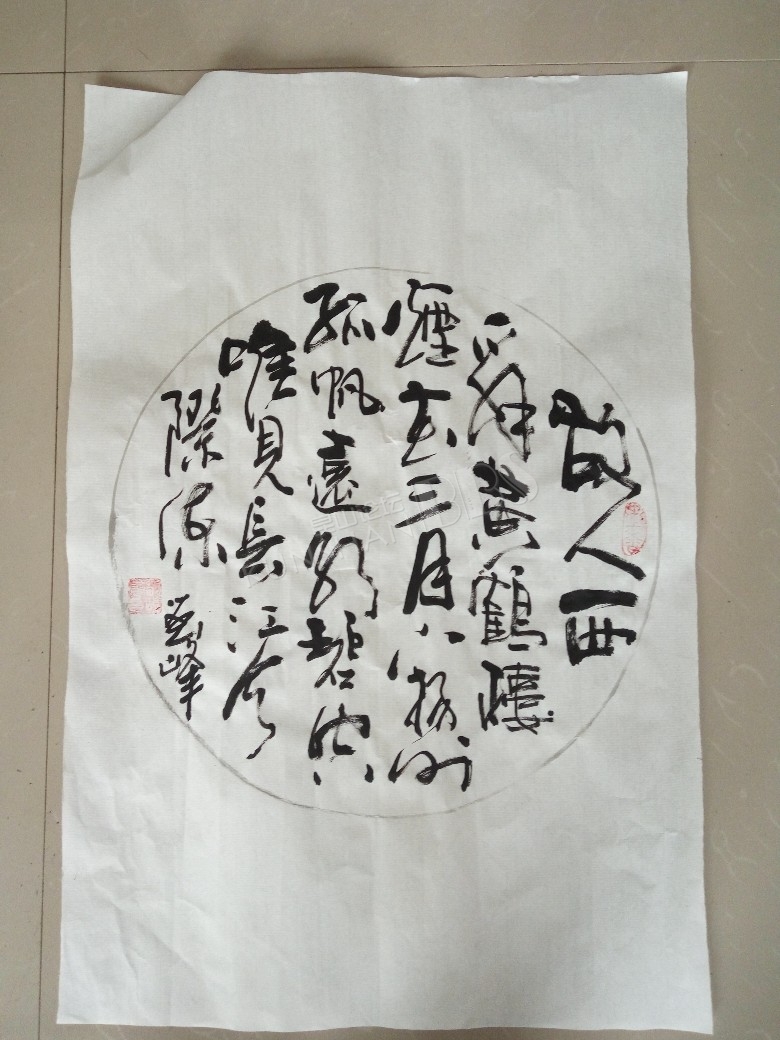 故人西
辭黄鶴樓
煙花三月下揚州
孤帆遠影碧空
唯見長江天
際流
峰